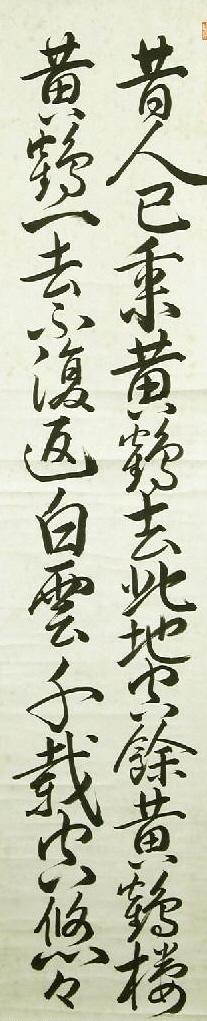 昔人已乗黄鶴去此地空餘黄鶴楼
黄鶴一去不復返白雲千載空悠々